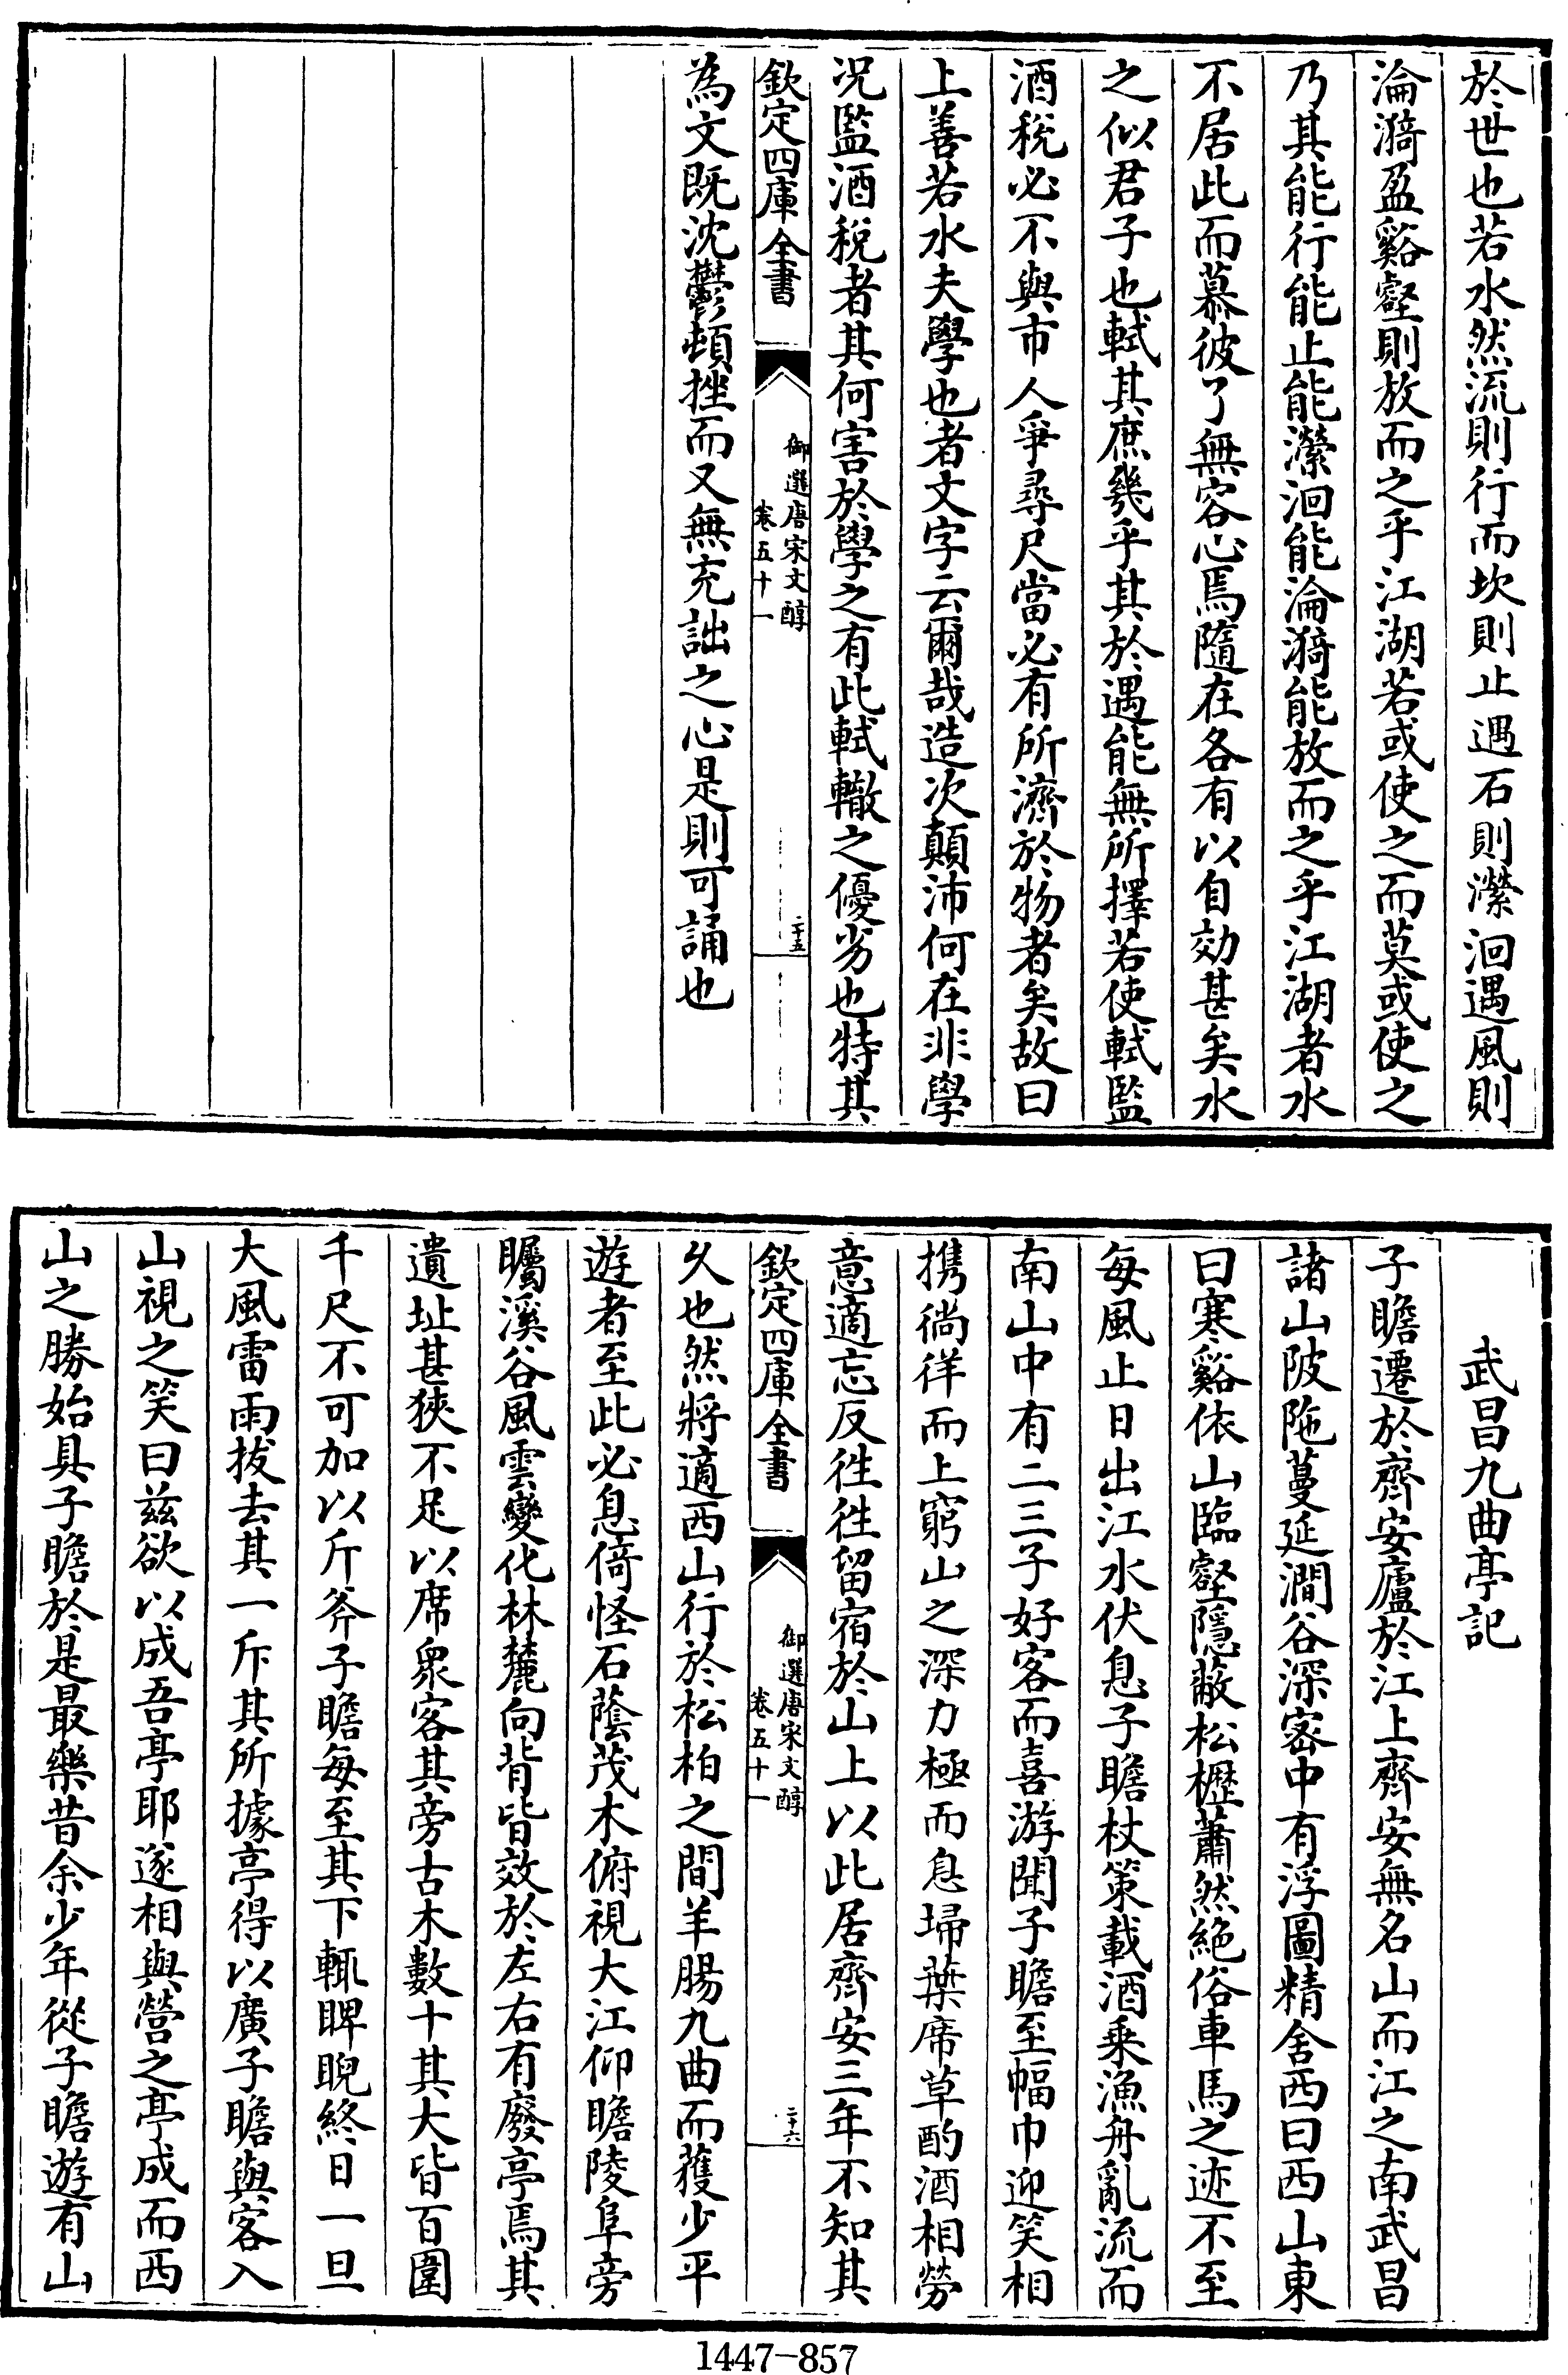 於世也若水然流則行而坎則止遇石則瀠洄遇風則
淪漪盈谿壑則放而之乎江湖若或使之而莫或使之
乃其能行能止能瀠洄能淪漪能放而之乎江湖者水
不居此而慕彼了無容心焉隨在各有以自効甚矣水
之似君子也軾其庶幾乎其於遇能無所擇若使軾監
酒稅必不與市人爭尋尺當必有所濟於物者矣故曰
上善若水夫學也者文字云爾哉造次顛沛何在非學
况監酒稅者其何害於學之有此軾轍之優劣也特其
欽定四庫全書
御選唐宋文醇
卷五十一
二十五
為文既沈鬱頓挫而又無充詘之心是則可誦也
武昌九曲亭記
子瞻遷於齊安廬於江上齊安無名山而江之南武昌
諸山陂陁蔓延澗谷深宻中有浮圖精舍西曰西山東
曰寒谿依山臨壑隱蔽松櫪蕭然絶俗車馬之迹不至
每風止日出江水伏息子瞻杖策載酒乘漁舟亂流而
南山中有二三子好客而喜游聞子瞻至幅巾迎笑相
携徜徉而上窮山之深力極而息埽葉席草酌酒相勞
意適忘反徃徃留宿於山上以此居齊安三年不知其
欽定四庫全書
御選唐宋文醇
卷五十一
二十六
久也然將適西山行於松柏之間羊腸九曲而獲少平
遊者至此必息倚怪石蔭茂木俯視大江仰瞻陵阜旁
矚溪谷風雲變化林麓向背皆效於左右有廢亭焉其
遺址甚狹不足以席衆客其旁古木數十其大皆百圍
千尺不可加以斤斧子瞻每至其下輒睥睨終日一旦
大風雷雨拔去其一斥其所據亭得以廣子瞻與客入
山視之笑曰兹欲以成吾亭耶遂相與營之亭成而西
山之勝始具子瞻於是最樂昔余少年從子瞻遊有山
1447-857